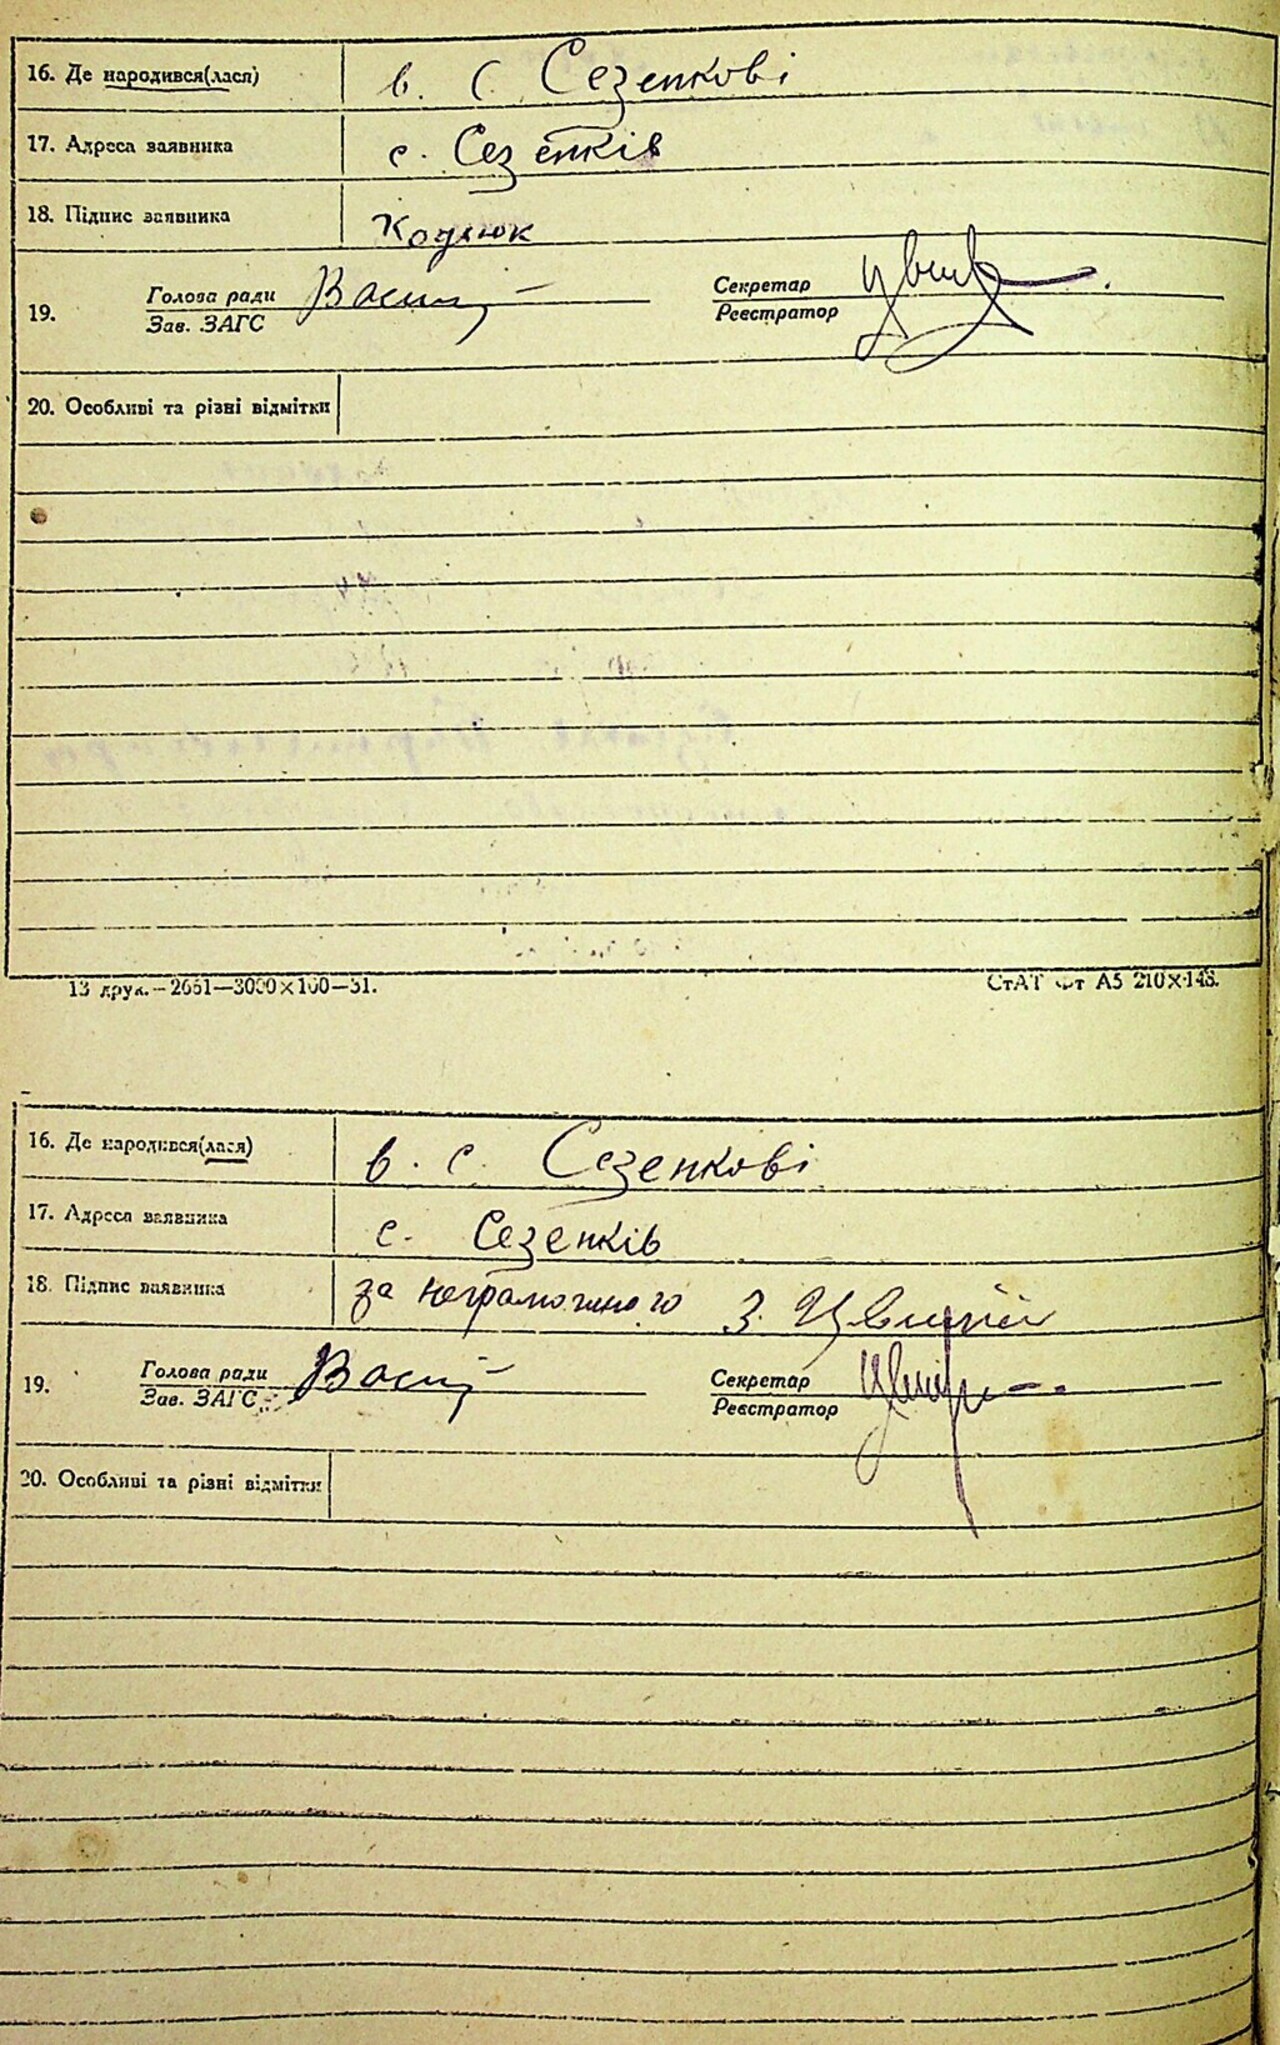 16. Де народився(лася) в. с. Сезенкові
17. Адреса заявника с. Сезенків
18. Підпис заявника
19. Голова ради Секретар
Зав. ЗАГС Реєстратор
20. Особливі та різні відмітки
13 друк.—2651—3000×100—31. СтАТ Фт А5 210×148.
16. Де народився(лася) в. с. Сезенкові
17. Адреса заявника с. Сезенків
18. Підпис заявника за неграмотного З.
19. Голова ради Секретар
Зав. ЗАГС Реєстратор
20. Особливі та різні відмітки